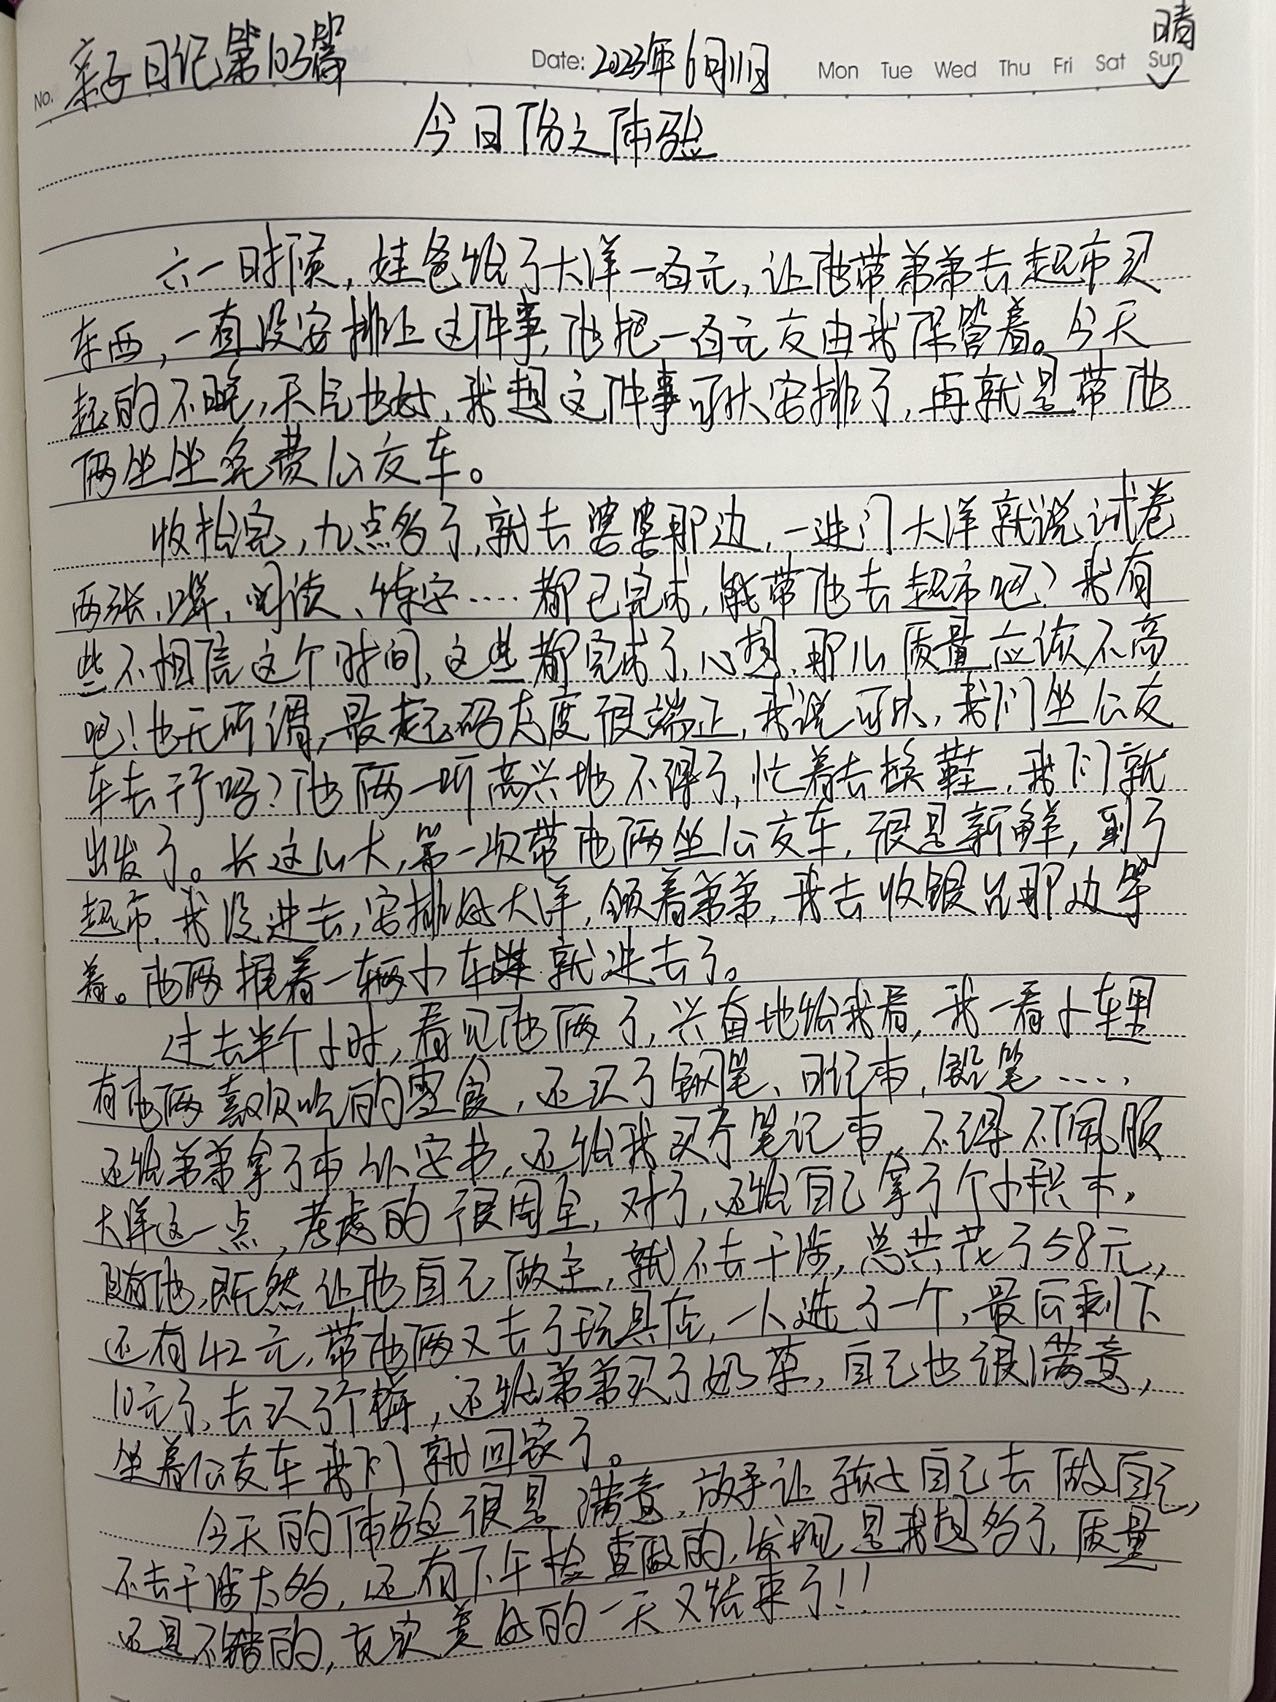 亲子日记第103篇
No. Date: 2023年6月11日 Mon Tue Wed Thu Fri Sat Sun 晴
今日份之体验
六一时候，娃爸给了大洋一百元，让他带弟弟去超市买
东西，一直没安排上这件事，他把一百元交由我保管着。今天
起的不晚，天气也好，我想这件事可以安排了，再就是带他
俩坐坐免费公交车。
收拾完，九点多了，就去婆婆那边，一进门大洋就说试卷
两张，课，阅读、练字……都已完成，能带他去超市吧？我有
些不相信这个时间，这些都完成了，心想，那儿质量应该不高
吧！也无所谓，最起码态度很端正，我说可以，我们坐公交
车去行吗？他俩一听高兴地不得了，忙着去换鞋，我们就
出发了。长这么大，第一次带他俩坐公交车，很是新鲜，到了
超市，我没进去，安排好大洋，领着弟弟，我去收银台那边等
着。他俩推着一辆小车就进去了。
过去半个小时，看见他俩了，兴奋地给我看，我一看小车里
有他俩喜欢吃的零食，还买了钢笔、日记本，铅笔……，
还给弟弟拿了本认字书，还给我买了笔记本，不得不佩服
大洋这一点，考虑的很周全，对了，还给自己拿了个小积木，
随他，既然让他自己做主，就不去干涉，总共花了58元，
还有42元，带他俩又去了玩具店，一人选了一个，最后剩下
10元了，去买了个饼，还给弟弟买了奶茶，自己也很满意，
坐着公交车我们就回家了。
今天的体验很是满意，放手让孩子自己去做自己，
不去干涉太多，还有下午检查做的，发现是我想多了，质量
还是不错的，充实美好的一天又结束了！！